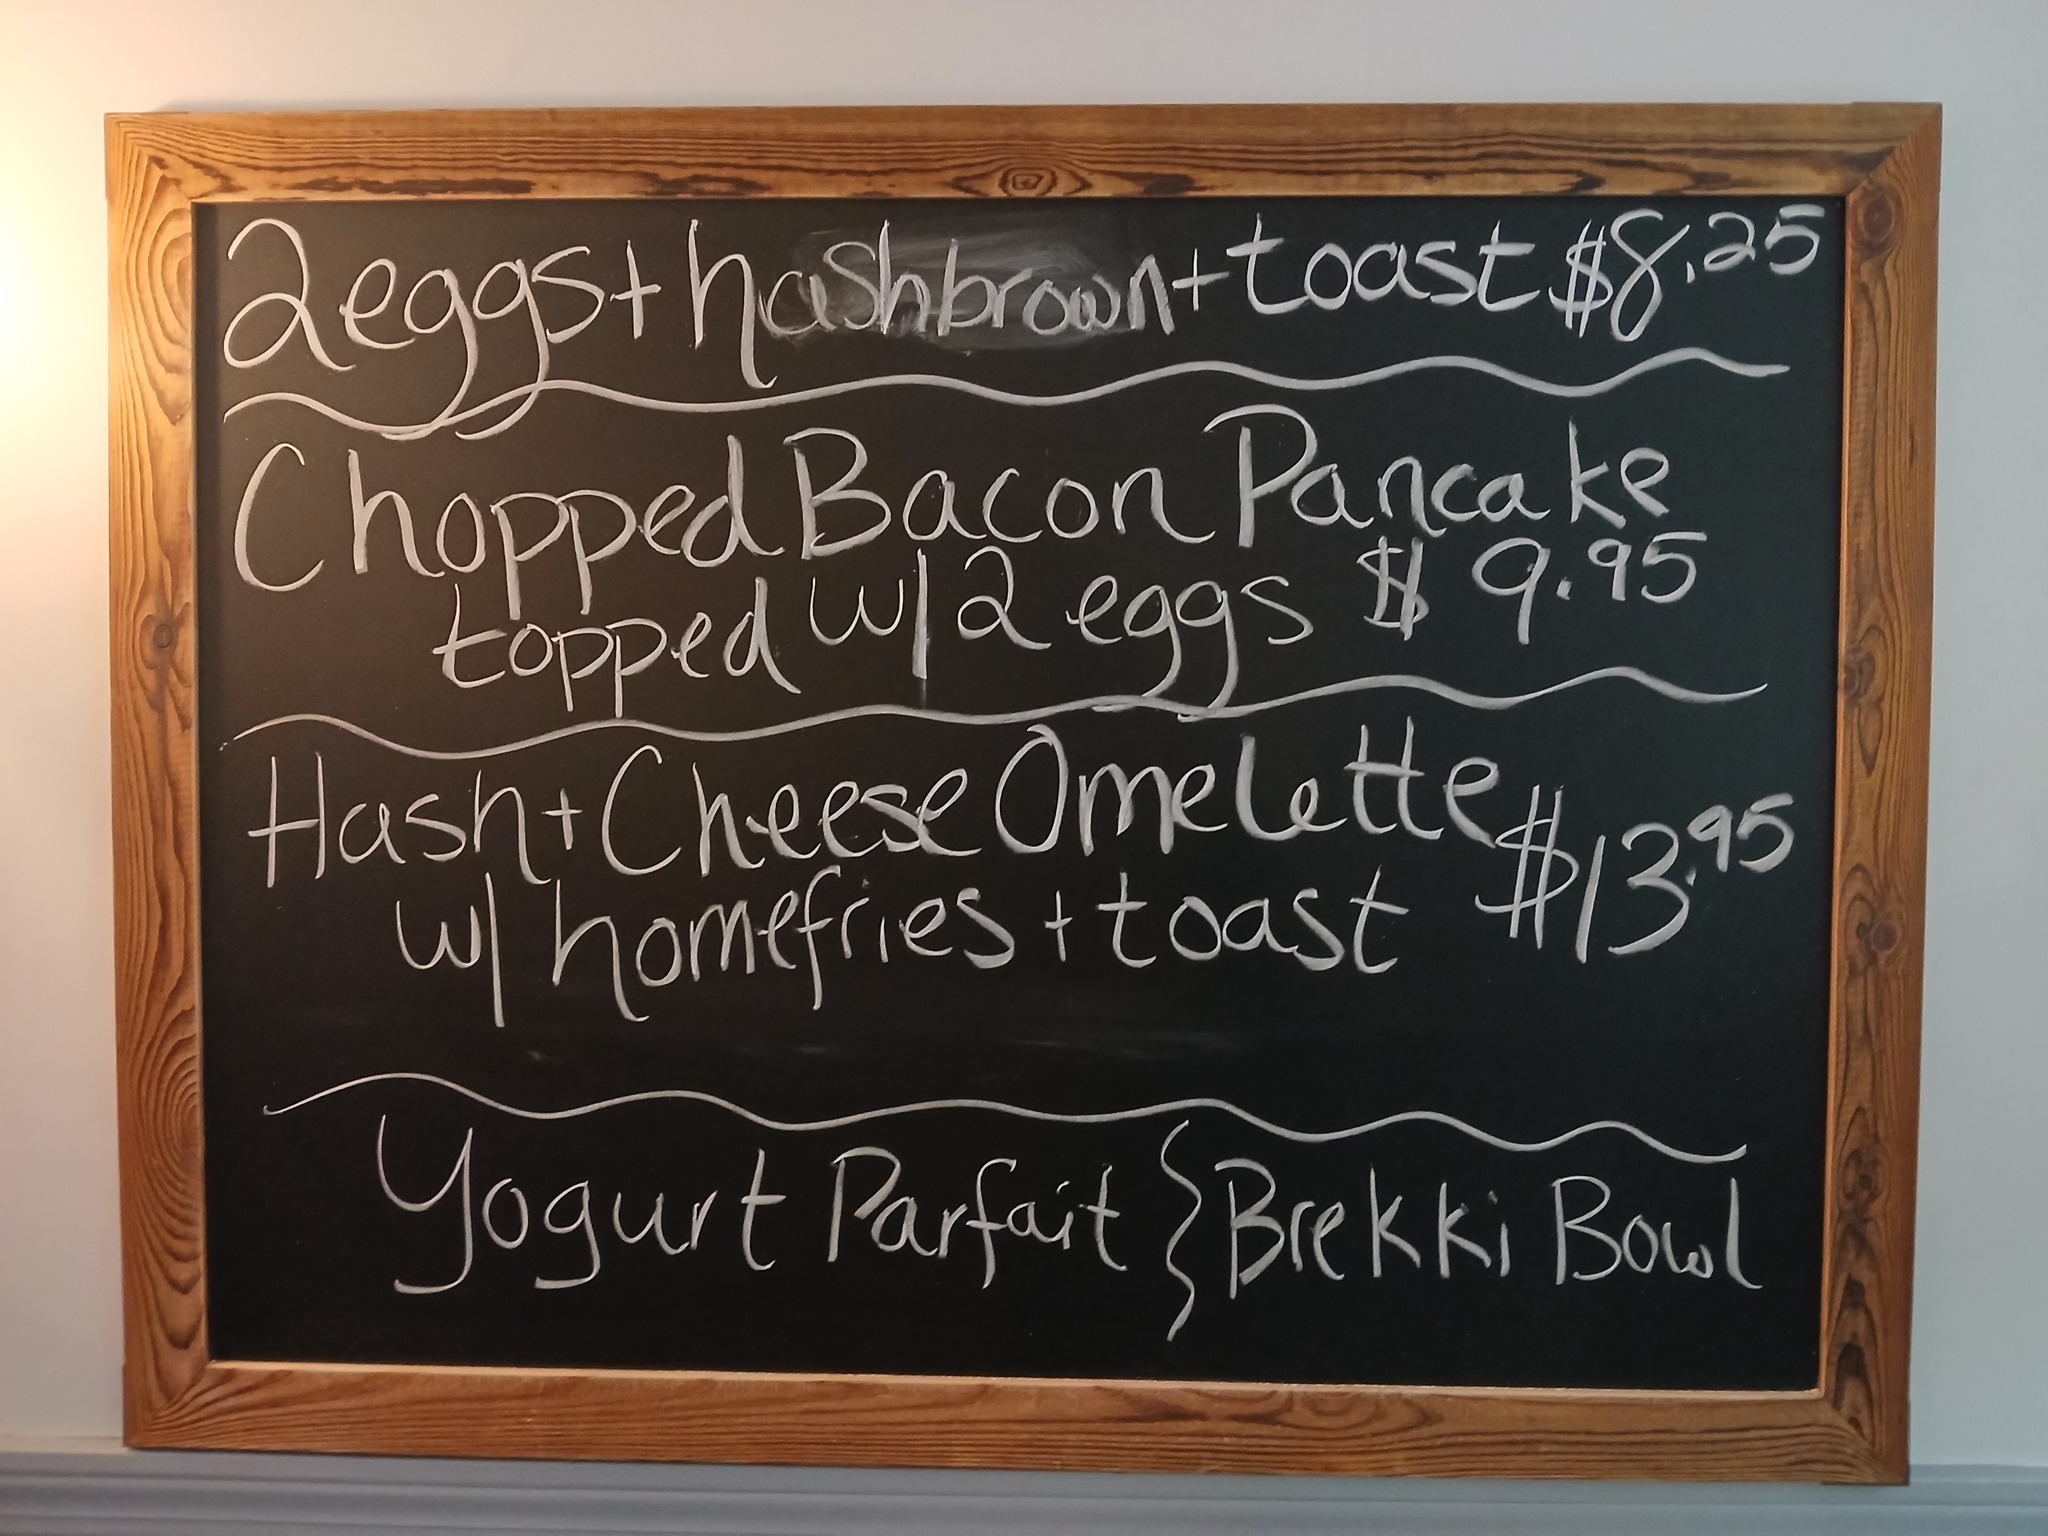 2 eggs + hashbrown + toast $8.25
Chopped Bacon Pancake
topped w/ 2 eggs $ 9.95
Hash + Cheese Omelette
w/ homefries + toast $13.95
Yogurt Parfait } Brekki Bowl